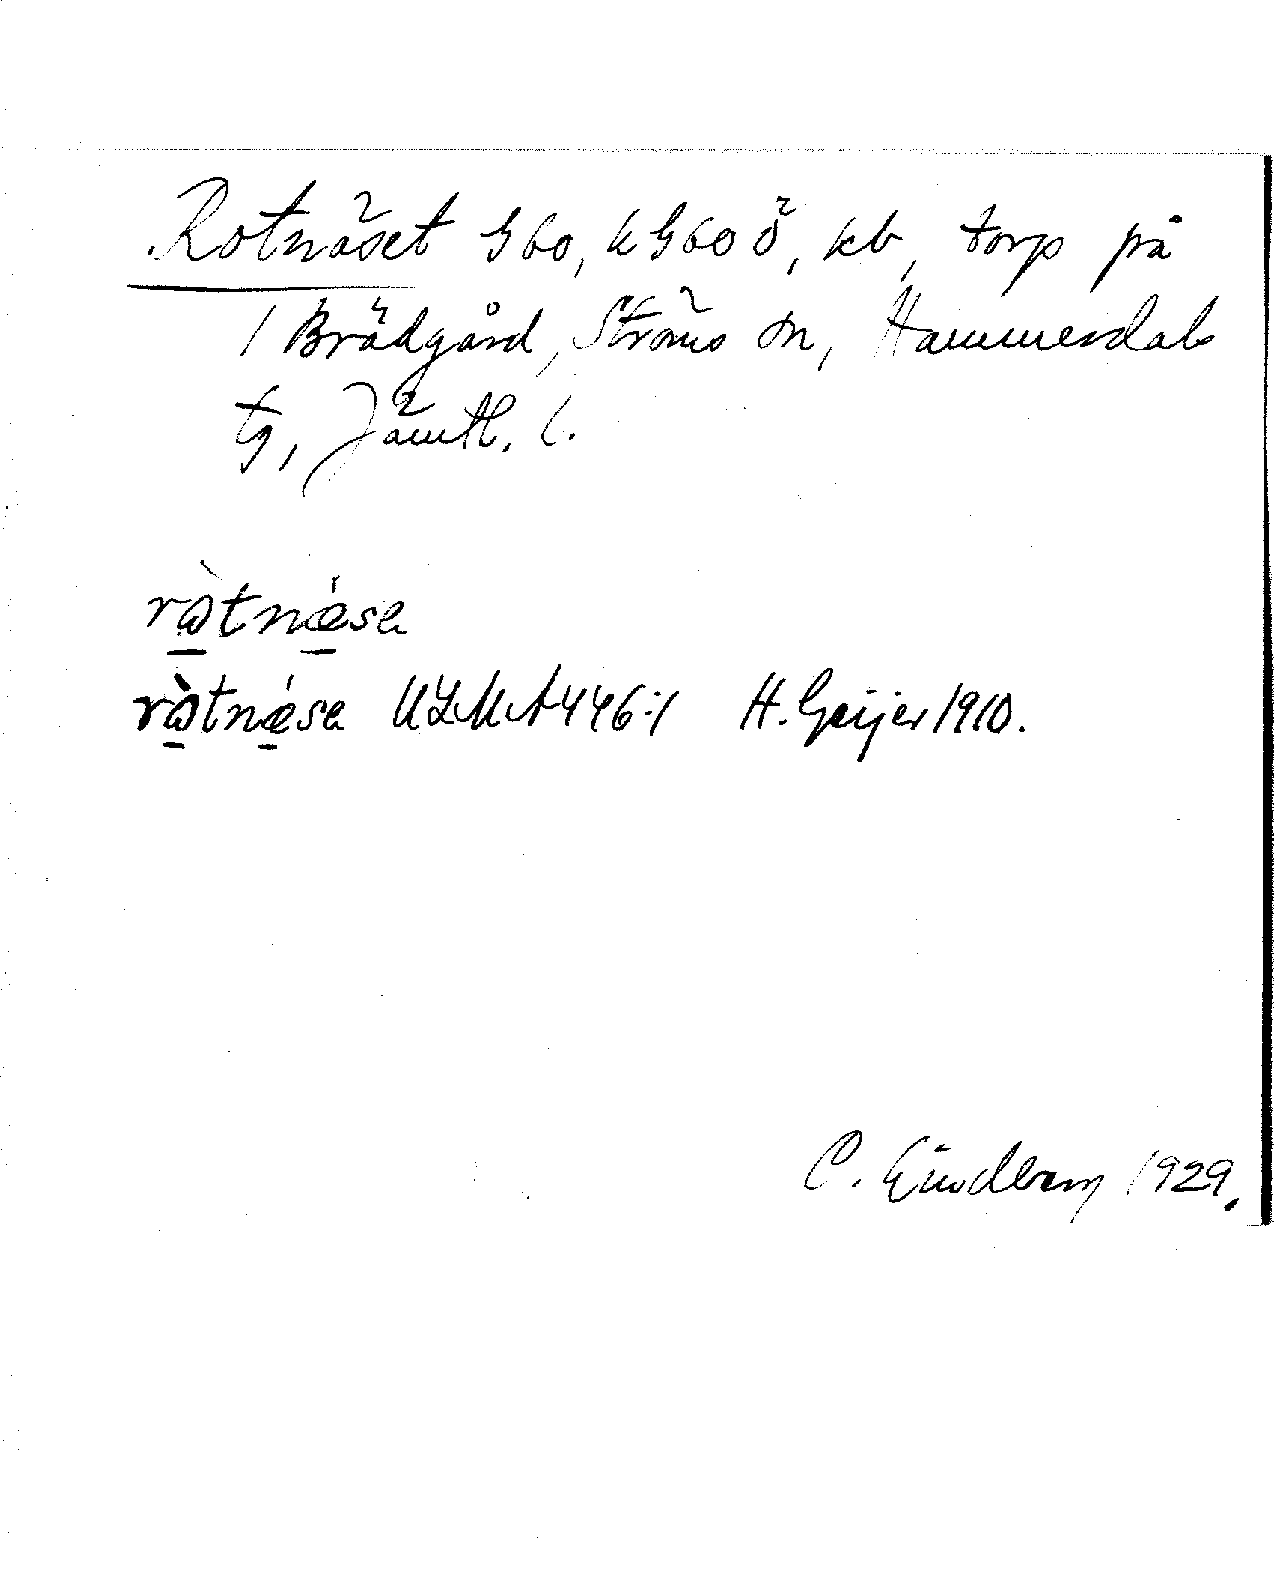 Rotnäset Gbo, k Gbo ö, kb, torp på
1 Brädgård, Ströms sn, Hammerdals
tg, Jämtl. l.
ròtnǽsa
ròtnǽsa ULMA 446:1 H. Geijer 1910.
C. Lindberg 1929.